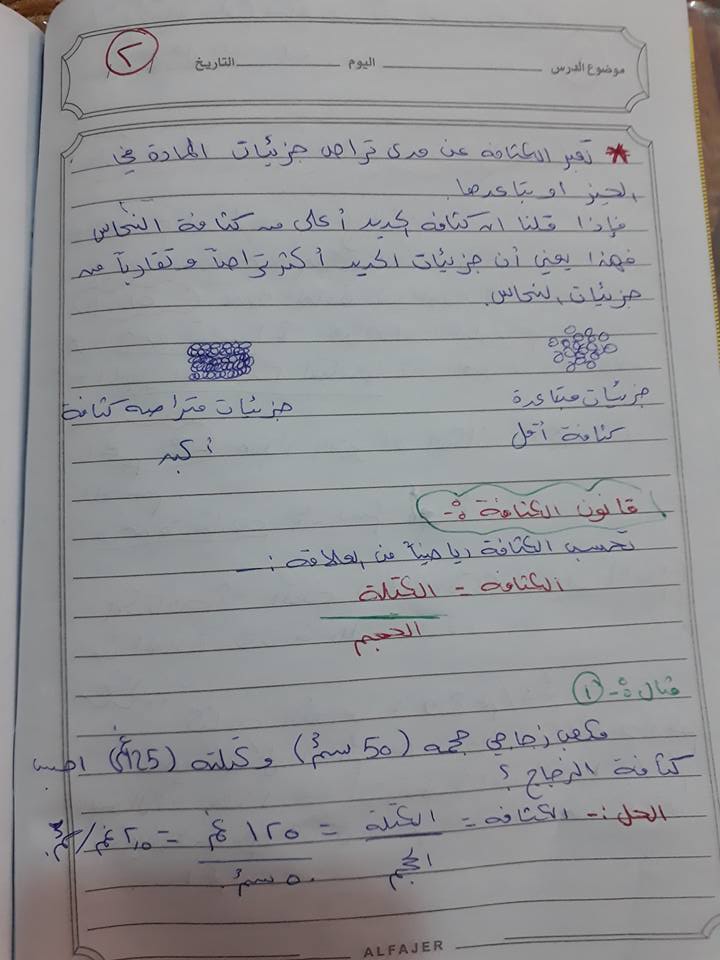 ٢
موضوع الدرس اليوم التاريخ
* تعبر الكثافة عن مدى تراص جزيئات المادة في
الحيز او تباعدها.
فإذا قلنا ان كثافة الحديد أعلى من كثافة النحاس
فهذا يعني أن جزيئات الحديد أكثر تراصاً و تقارباً من
جزيئات النحاس.
جزيئات متباعدة جزيئات متراصه كثافة
كثافة أقل أكبر
قانون الكثافة :-
تحسب الكثافة رياضياً من العلاقة :
الكثافة = الكتلة
الحجم
مثال :- ①
مكعب زجاجي حجمه (50 سم³) و كتلته (125 غ) احسب
كثافة الزجاج ؟
الحل :- الكثافة = الكتلة = ١٢٥ غم = ٢,٥ غم/سم³
الحجم ٥٠ سم³
ALFAJER